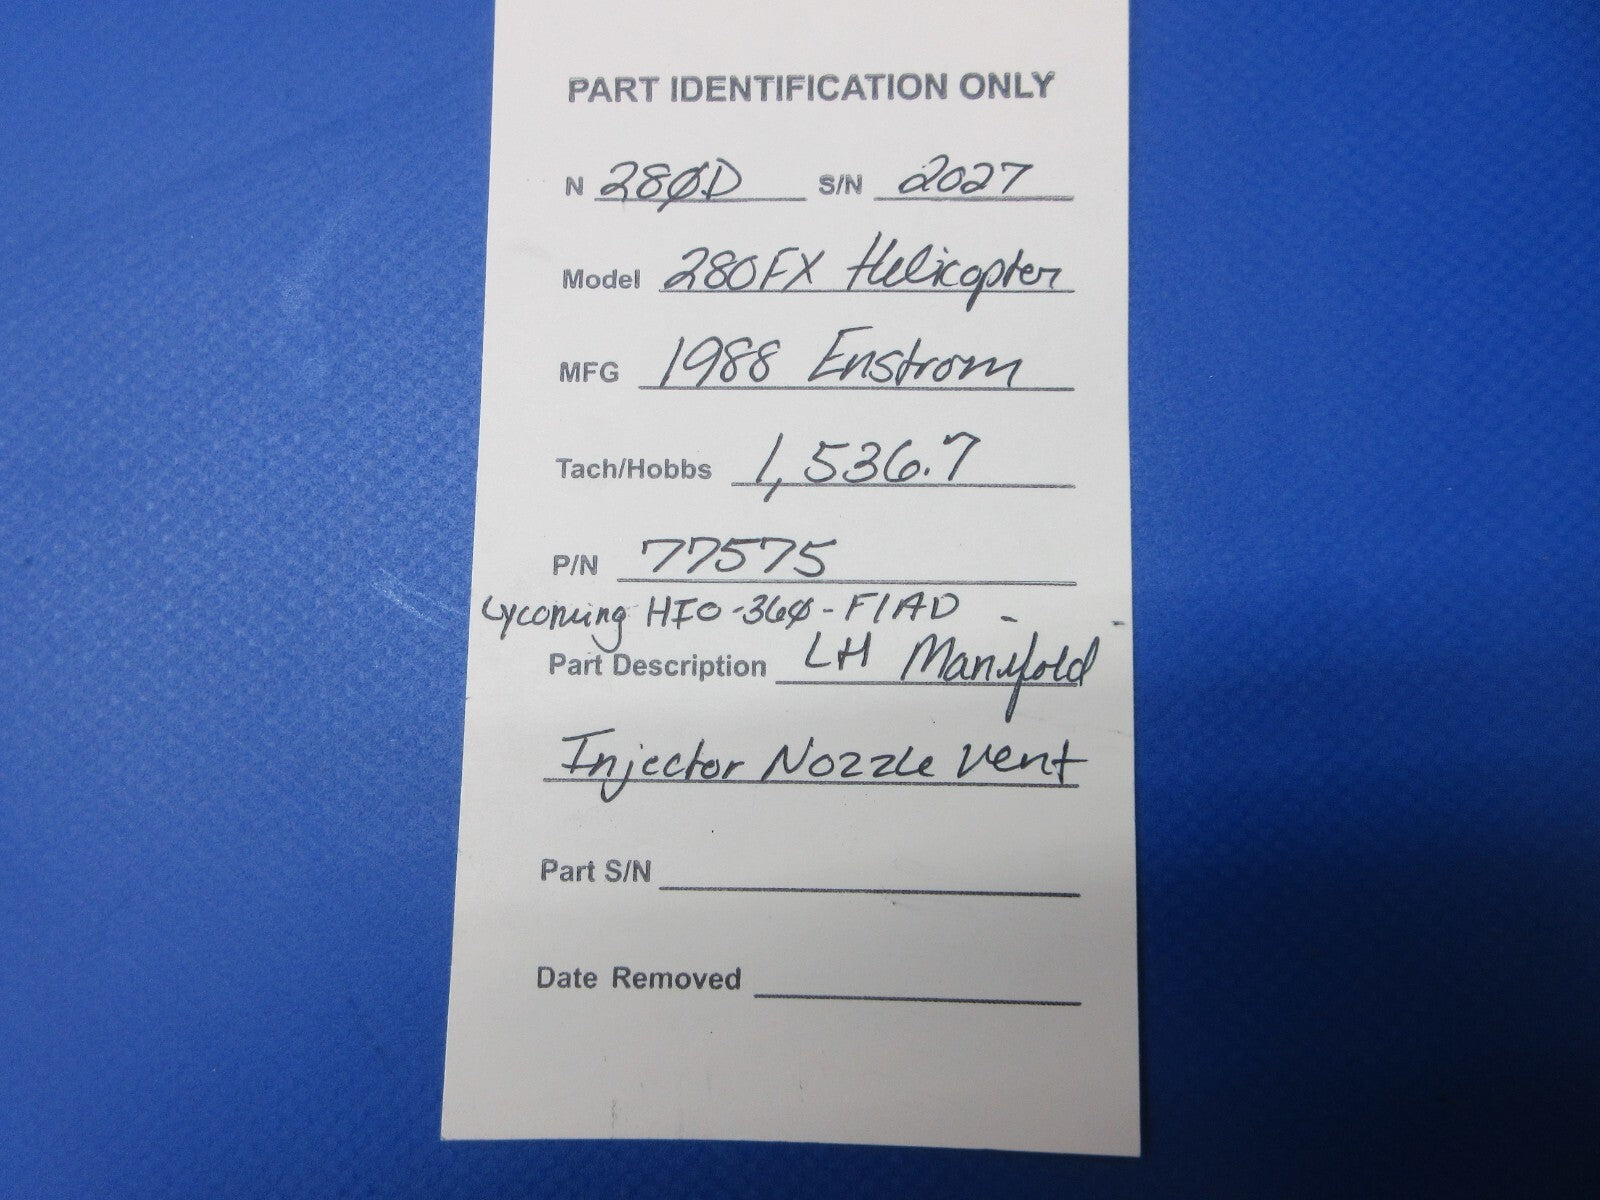 PART IDENTIFICATION ONLY
N 280D S/N 2027
Model 280FX Helicopter
MFG 1988 Enstrom
Tach/Hobbs 1,536.7
P/N 77575
Lycoming HIO-360-F1AD
Part Description LH Manifold
Injector Nozzle Vent
Part S/N
Date Removed